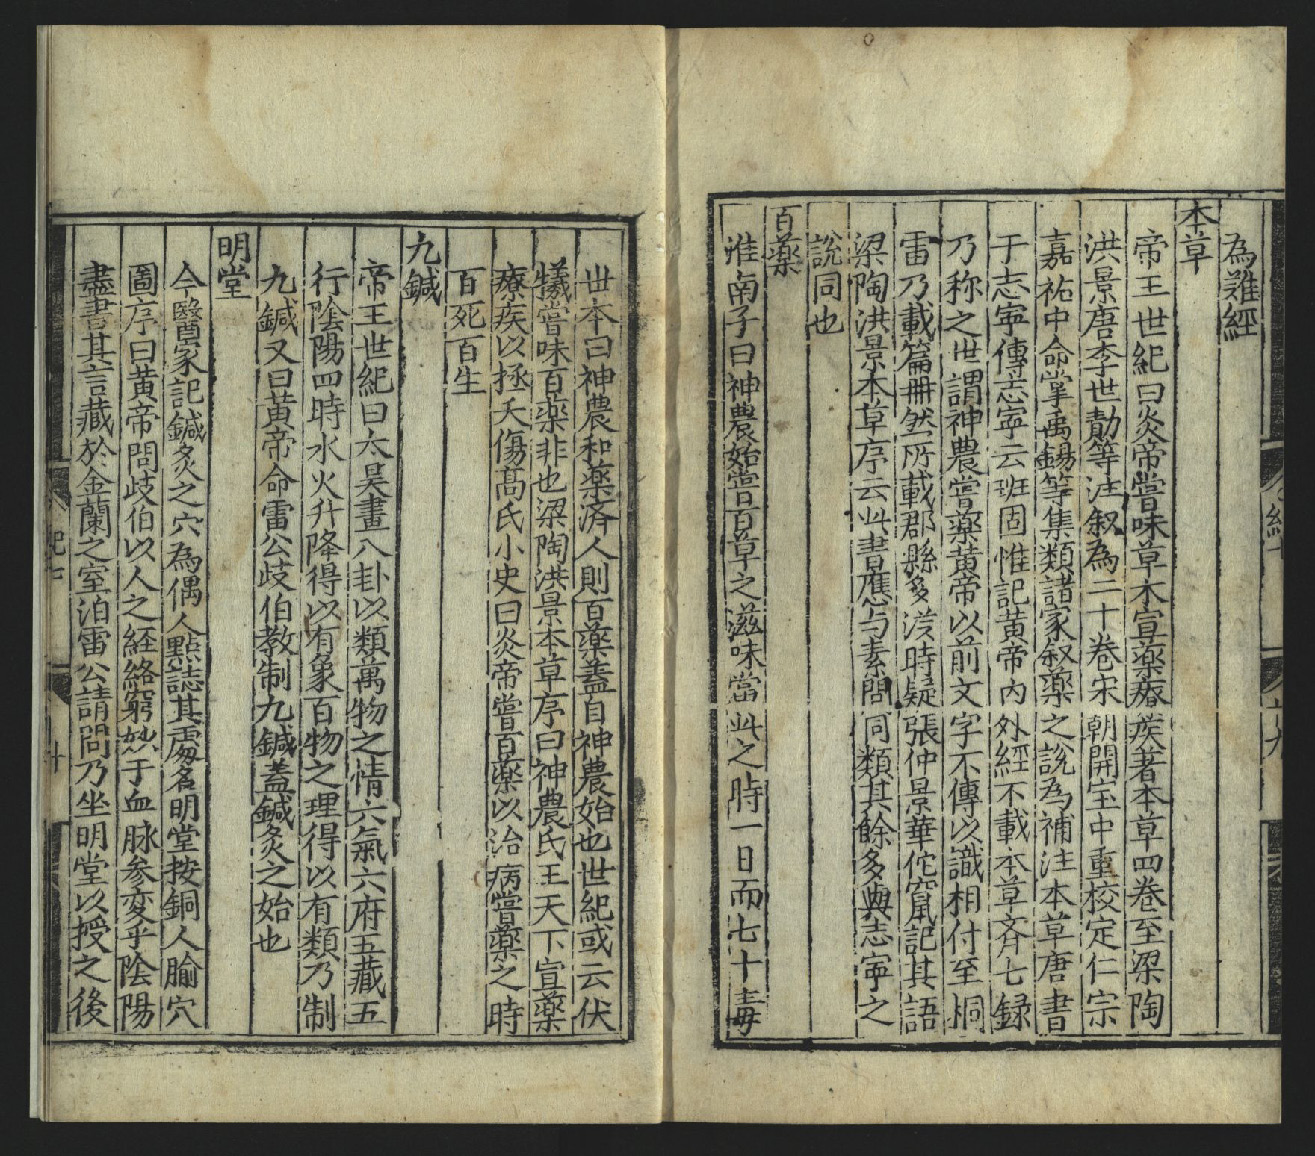 為難經
本草
帝王世紀曰炎帝嘗味草木宣藥療疾著本草四卷至梁陶
洪景唐李世勣等注叙為二十卷宋朝開宝中重校定仁宗
嘉祐中命掌禹錫等集類諸家叙藥之說為補注本草唐書
于志寧傳志寧云班固惟記黃帝內外經不載本草齊七録
乃称之世謂神農嘗藥黃帝以前文字不傳以識相付至桐
雷乃載篇冊然所載郡縣多漢時疑張仲景華佗竄記其語
梁陶洪景本草序云此書應与素問同類其餘多與志寧之
說同也
百藥
淮南子曰神農始嘗百草之滋味當此之時一日而七十毒
世本曰神農和藥济人則百藥蓋自神農始也世紀或云伏
犧嘗味百藥非也梁陶洪景本草序曰神農氏王天下宣藥
療疾以拯夭傷高氏小史曰炎帝嘗百藥以治病嘗藥之時
百死百生
九鍼
帝王世紀曰太昊畫八卦以類萬物之情六氣六府五藏五
行陰陽四時水火升降得以有象百物之理得以有類乃制
九鍼又曰黃帝命雷公歧伯教制九鍼蓋鍼灸之始也
明堂
今醫家記鍼灸之穴為偶人點誌其處名明堂按銅人腧穴
圖序曰黃帝問歧伯以人之経絡窮妙于血脉参変乎陰陽
盡書其言藏於金蘭之室洎雷公請問乃坐明堂以授之後